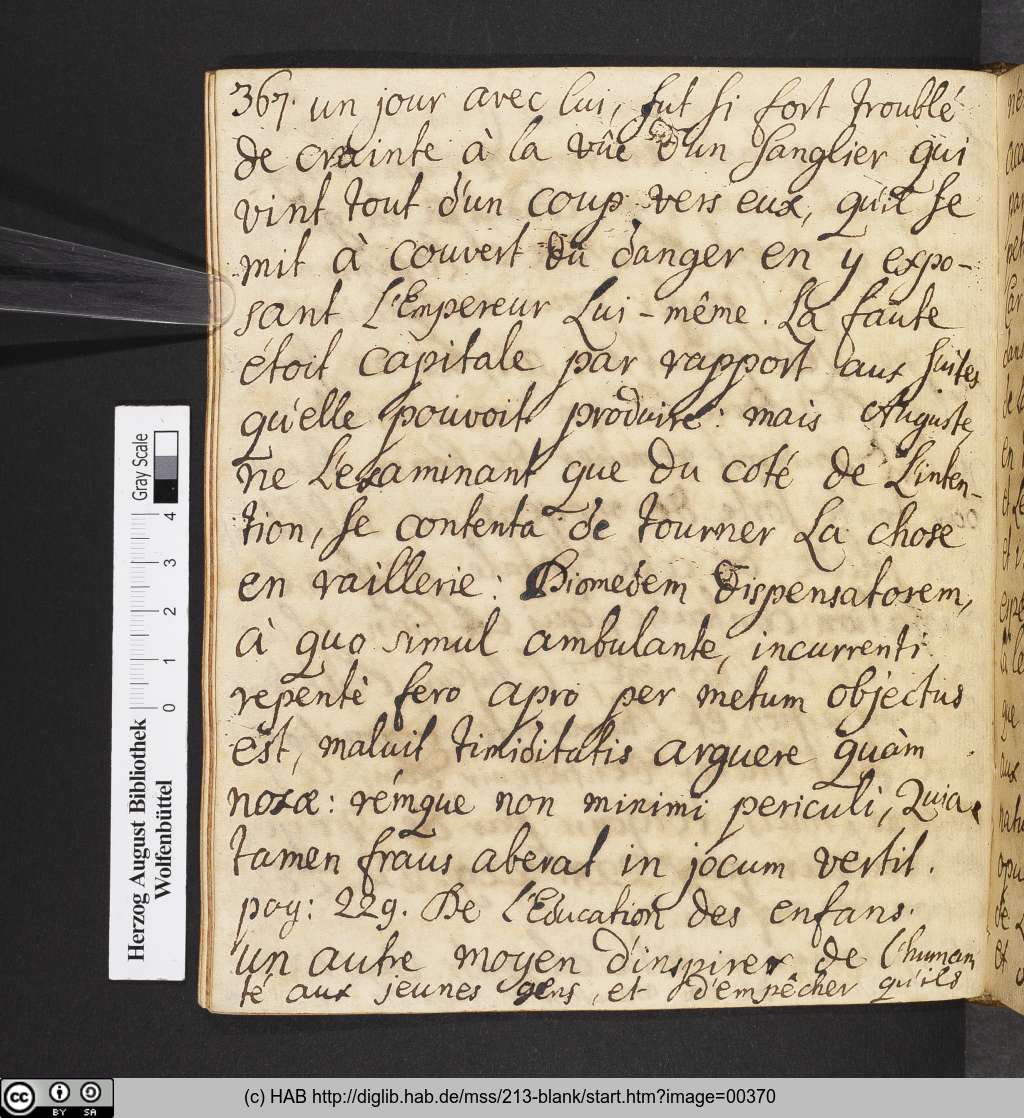 367. un jour avec lui, fut si fort troublé
de crainte à la vûe d'un sanglier qui
vint tout d'un coup vers eux, qu'il se
mit à couvert du danger en y expo-
sant l'Empereur Lui-même. La faute
étoit capitale par rapport aux suites
qu'elle pouvoit produire: mais Auguste,
ne l'examinant que du coté de L'inten-
tion, se contenta de tourner La chose
en raillerie: Diomedem dispensatorem,
à quo simul ambulante, incurrenti
repentè fero apro per metum objectus
est, maluit timiditatis arguere quàm
noxæ: rémque non minimi periculi, Quia
tamen fraus aberat in jocum vertit.
pag: 229. De l'Education des enfans.
un autre moyen d'inspirer de l'humani
té aux jeunes gens, et d'empêcher qu'ils
Herzog August Bibliothek
Wolfenbüttel
0 1 2 3 4
Gray Scale
(c) HAB http://diglib.hab.de/mss/213-blank/start.htm?image=00370
cc BY SA